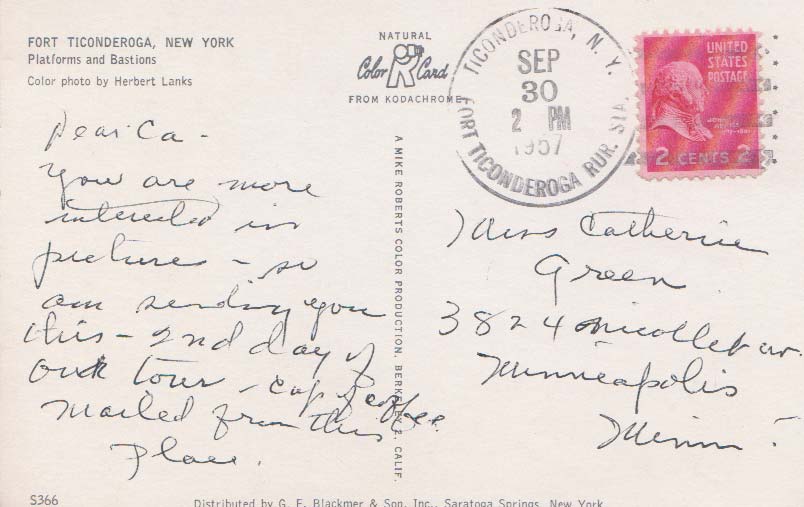 FORT TICONDEROGA, NEW YORK
Platforms and Bastions
Color photo by Herbert Lanks
NATURAL
Color Card
FROM KODACHROME
TICONDEROGA, N. Y.
SEP
30
2 PM
1957
FORT TICONDEROGA RUR. STA.
UNITED
STATES
POSTAGE
2 CENTS 2
Dear Ca -
You are more
interested in
picture - so
am sending you
this - 2nd day of
our tour - cup of coffee.
Mailed from this
Place.
A MIKE ROBERTS COLOR PRODUCTION. BERKELEY 2, CALIF.
Miss Catherine
Green
3824 Nicollet av.
Minneapolis
Minn.
S366
Distributed by G. F. Blackmer & Son, Inc., Saratoga Springs, New York